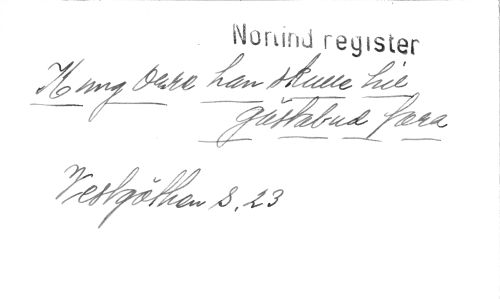 Norlind register
Kung Oure han skulle til
gästabud fara
Vestgöthen S. 23